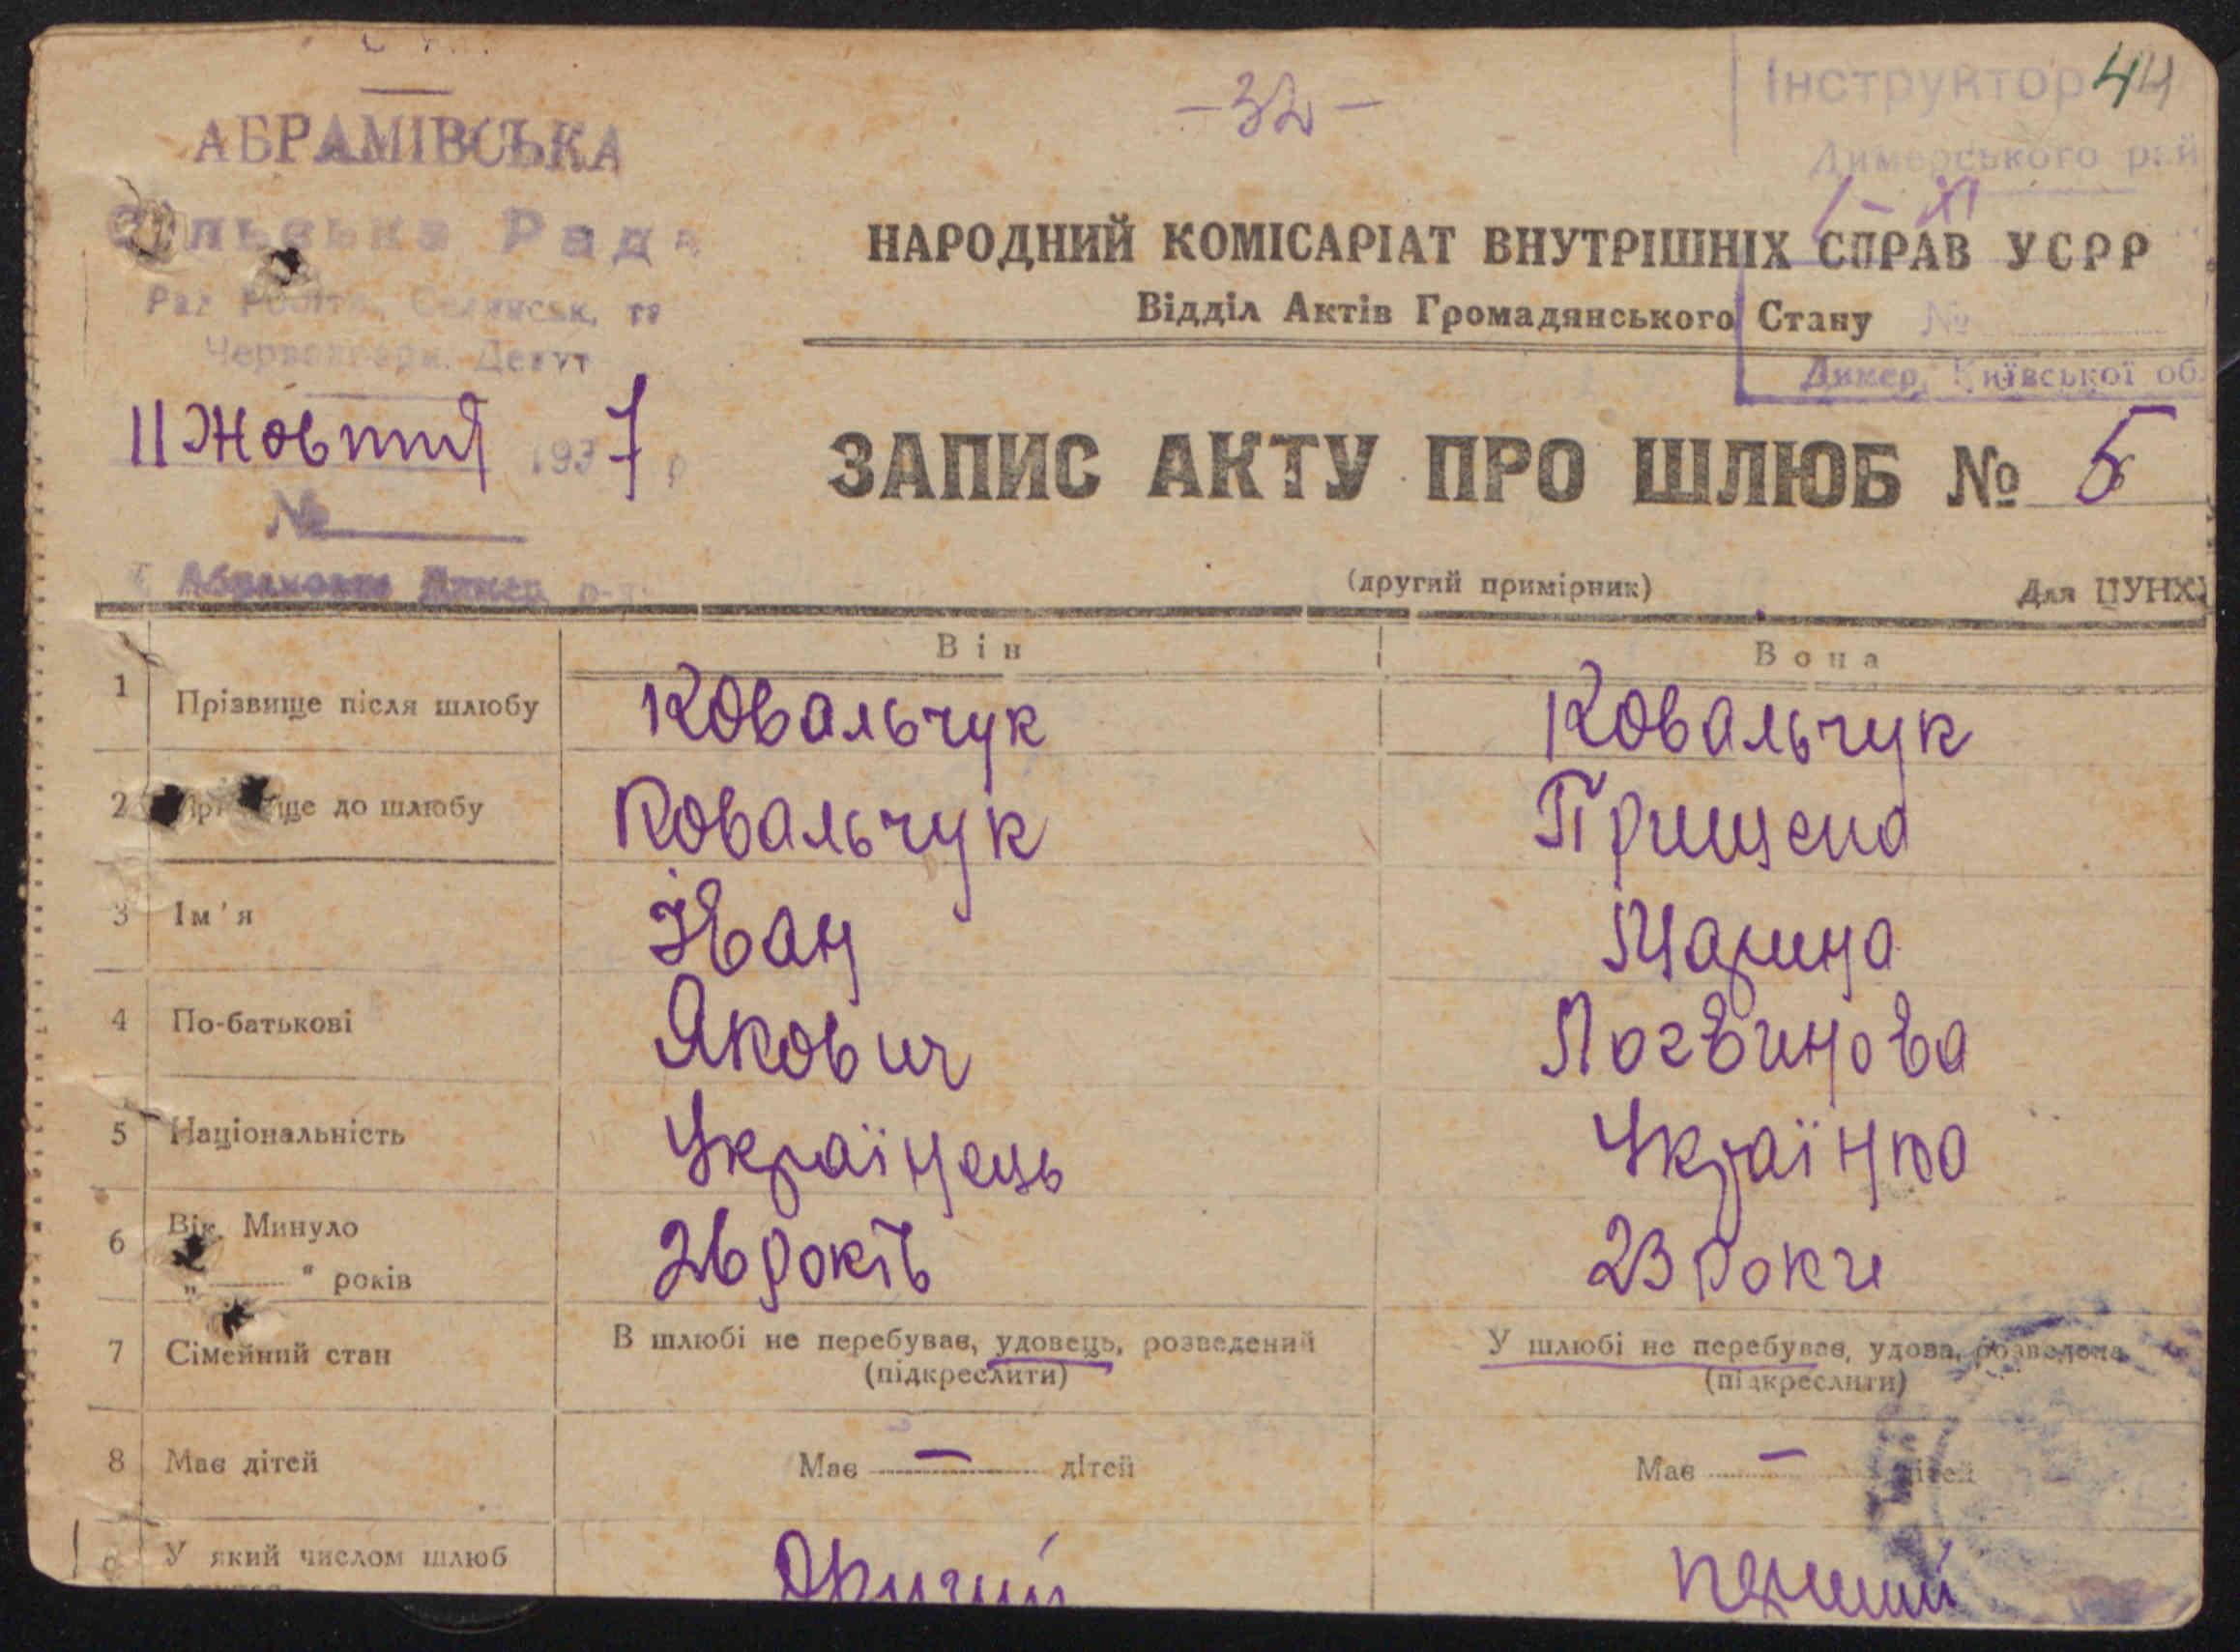 АБРАМІВСЬКА
Сільська Рада
Рад Робітн. Селянськ. та
Червоноарм. Депут
11 Жовтня 1937 р
№
-32-
Інструктор 44
Димерського рай
1-XI
НАРОДНИЙ КОМІСАРІАТ ВНУТРІШНІХ СПРАВ УСРР
Відділ Актів Громадянського Стану
№
Димер, Київської об
ЗАПИС АКТУ ПРО ШЛЮБ № 5
(другий примірник) Для ЦУНХ
Він Вона
1 Прізвище після шлюбу Ковальчук Ковальчук
2 Прізвище до шлюбу Ковальчук Прищепа
3 Ім'я Іван Марина
4 По-батькові Якович Логвинова
5 Національність Українець Українка
6 Вік. Минуло
„ " років 26 років 23 роки
7 Сімейний стан В шлюбі не перебував, удовець, розведений У шлюбі не перебував, удова, розведена
(підкреслити) (підкреслити)
8 Має дітей Має — дітей Має — дітей
9 У який числом шлюб Другий перший